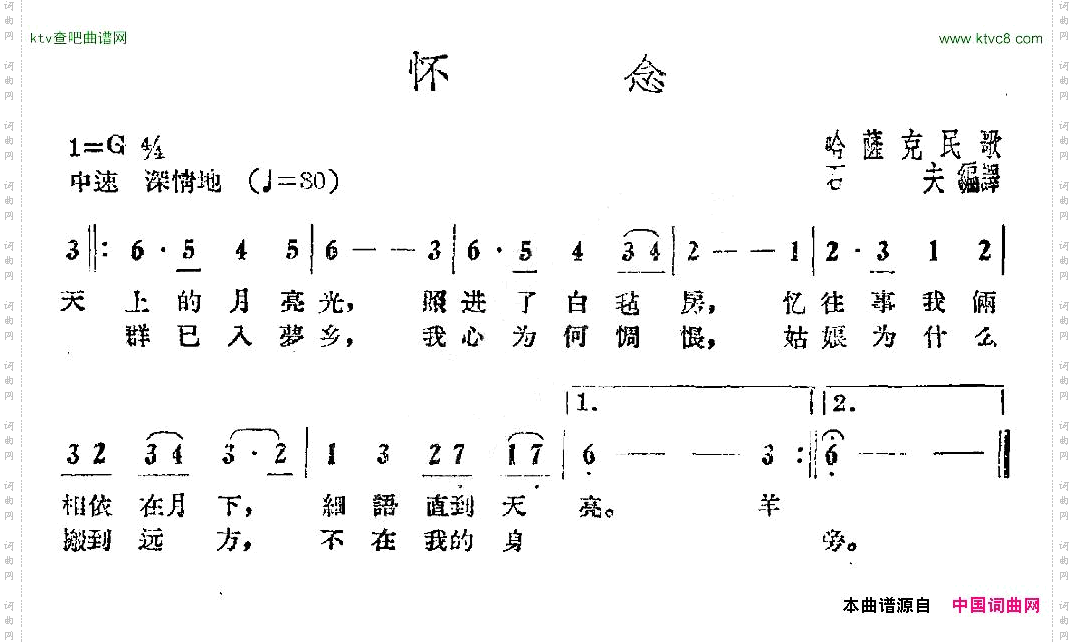 ktv查吧曲谱网
www ktvc8 com
怀 念
1=G 4/4
哈薩克民歌
中速 深情地 (♩=80)
石 夫 編譯
3 ‖: 6 · 5 4 5 | 6 — — 3 | 6 · 5 4 3 4 | 2 — — 1 | 2 · 3 1 2 |
天 上 的 月 亮 光, 照 进 了 白 毡 房, 忆 往 事 我 俩
群 已 入 夢 乡, 我 心 为 何 惆 悵, 姑 娘 为 什 么
1. 2.
3 2 3 4 3 · 2 | 1 3 2 7 1 7 | 6 — — 3 :‖ 6 — — ‖
相依 在月 下, 細 語 直到 天 亮。 羊
搬到 远 方, 不 在 我的 身 旁。
本曲谱源自 中国词曲网